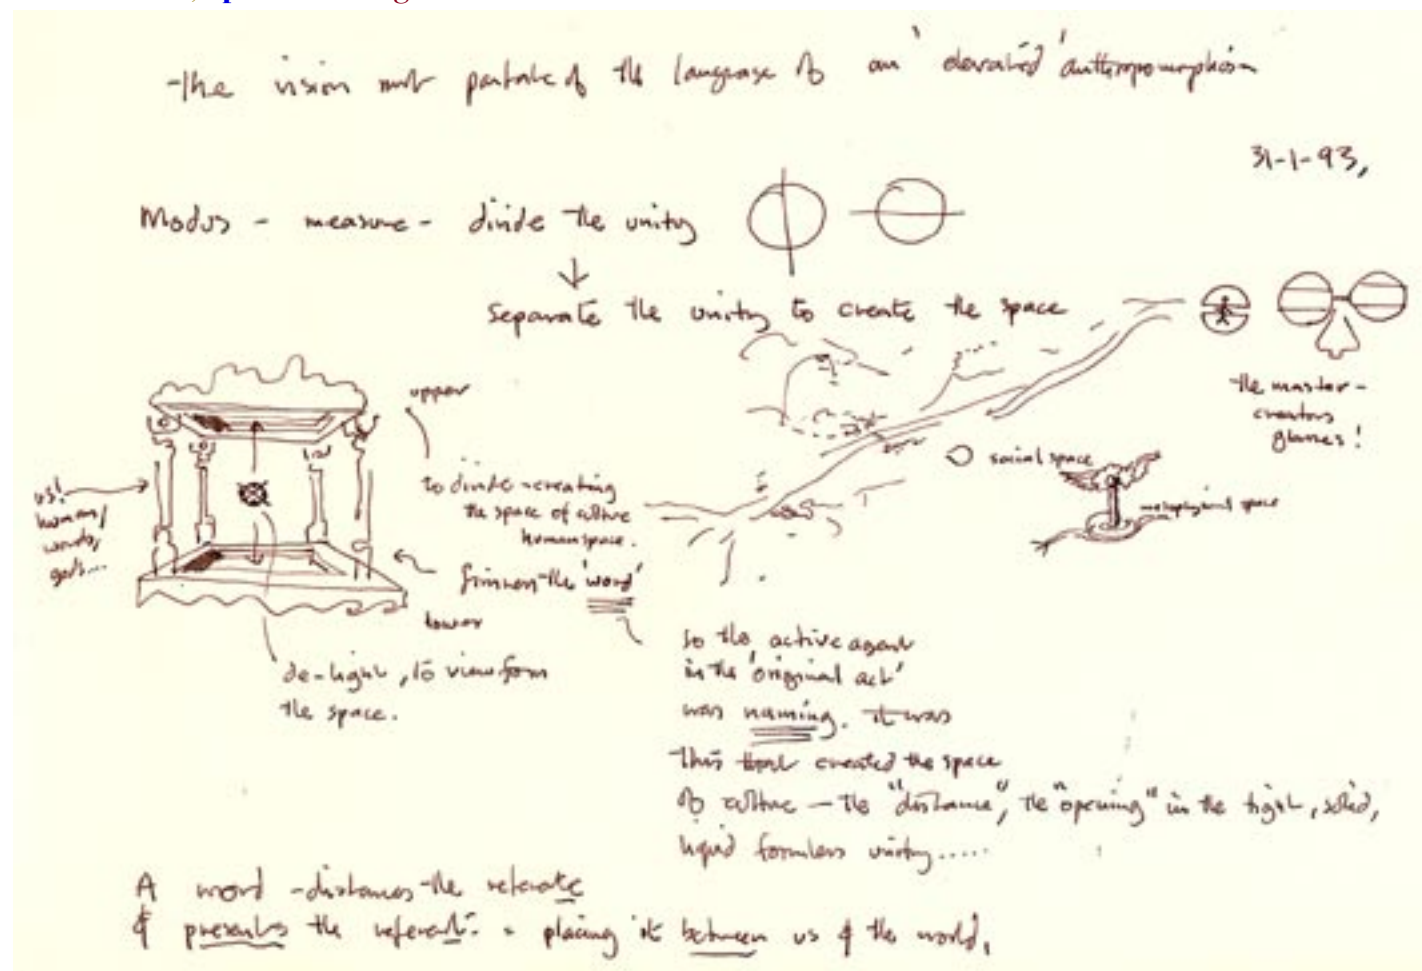 -The vision must partake of the language of an 'elevated' anthropomorphism
31-1-93,
Modus - measure - divide the unity
separate the unity to create the space
the master-
creators
glasses!
upper
social space
metaphysical space
us!
human/
words,
gods...
to divide - creating
the space of culture
human space.
the 'word'
lower
de-light, to view from
the space.
so the active agent
in the 'original act'
was naming. it was
this that created the space
of culture - the "distance", the "opening" in the tight, solid,
liquid formless unity.....
A word - distances the referate
& presents the referent. = placing it between us & the world,